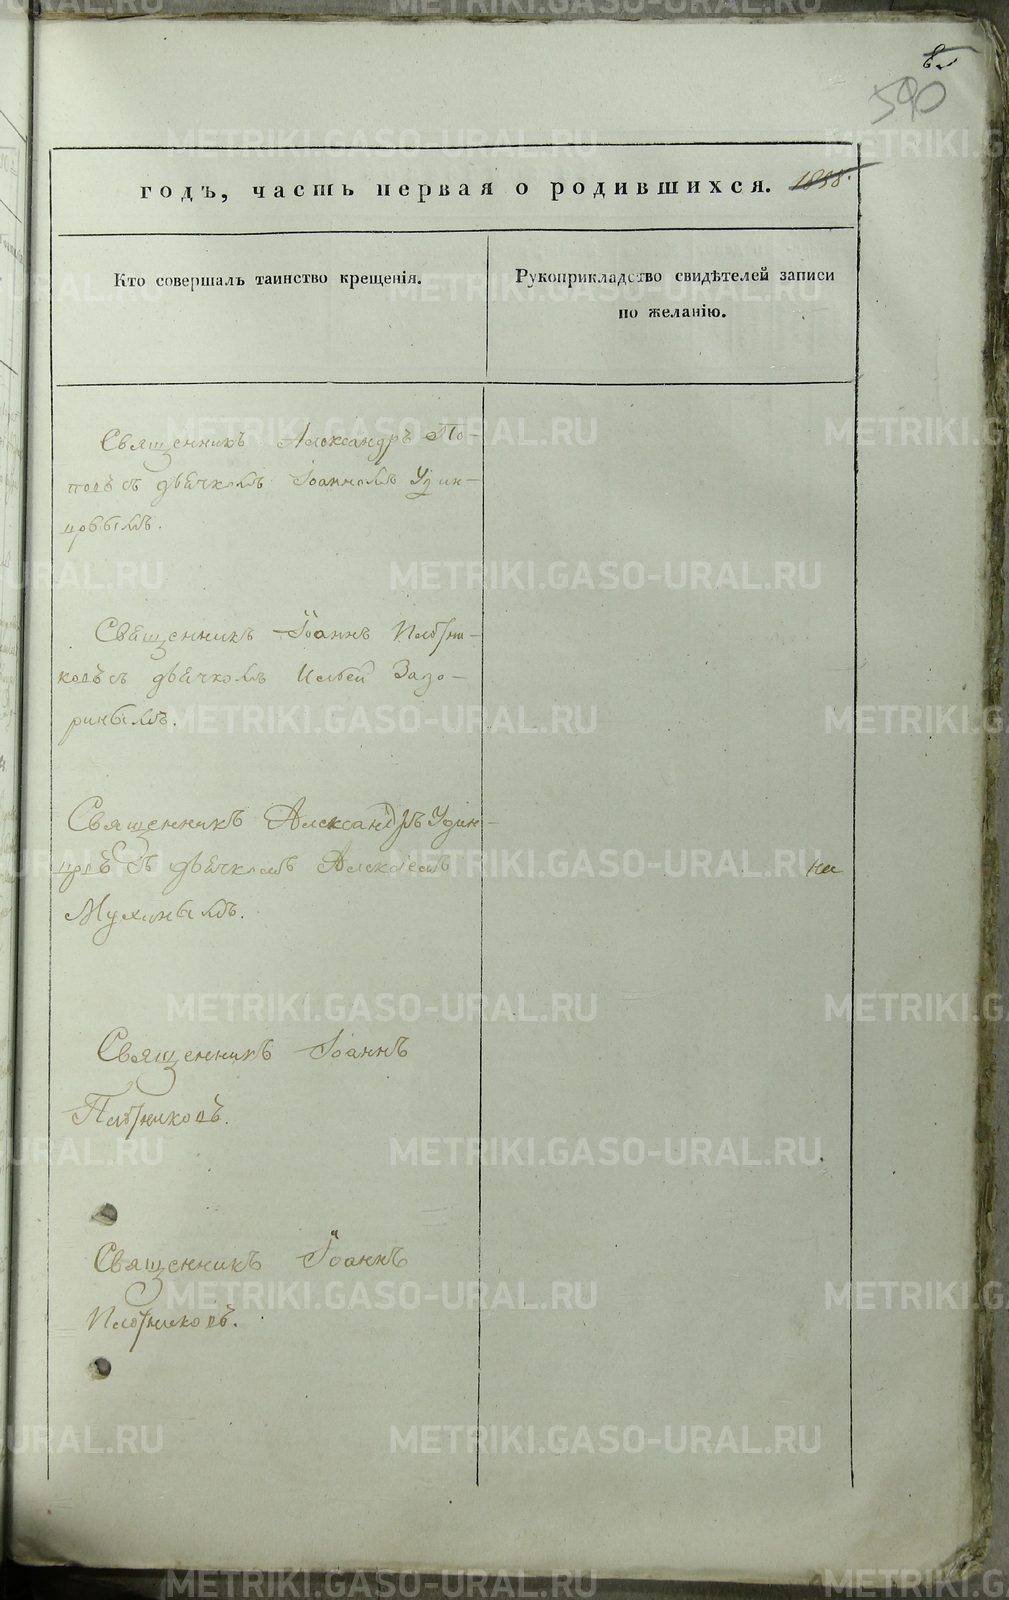 590
годъ, часть первая о родившихся. 1858.
Кто совершалъ таинство крещенія.
Рукоприкладство свидѣтелей записи
по желанію.
Священникъ Александръ По-
повъ съ дьячкомъ Іоанномъ Удин-
цовымъ.
Священникъ Іоаннъ Плотни-
ковъ съ дьячкомъ Ильей Зазо-
ринымъ.
Священникъ Александръ Удин-
цовъ съ дьячкомъ Алексіемъ
на
Мухинымъ.
Священникъ Іоаннъ
Плотниковъ.
Священникъ Іоаннъ
Плотниковъ.
METRIKI.GASO-URAL.RU